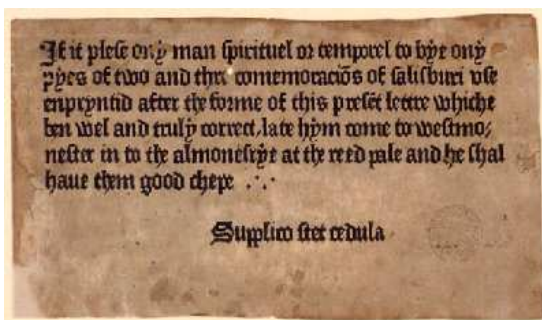 If it plese ony man spirituel or temporel to bye ony
pyes of two and thre comemoracios of salisburi vse
enpryntid after the forme of this preset lettre whiche
ben wel and truly correct, late hym come to westmo⸗
nester in to the almonesrye at the reed pale and he shal
haue them good chepe .·.
Supplico stet cedula